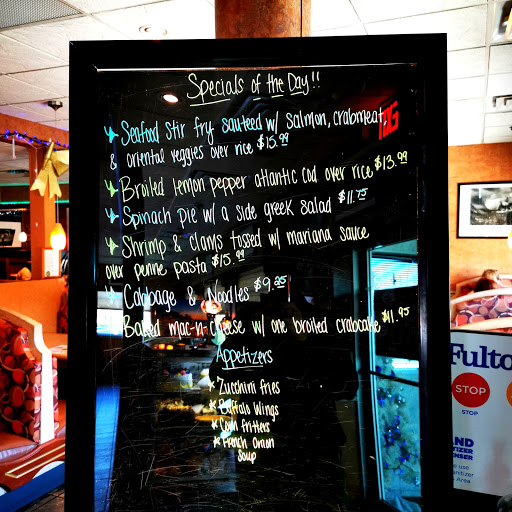 Specials of the Day!!
Seafood stir fry sauteed w/ salmon, crabmeat,
& oriental veggies over rice $15.99
Broiled lemon pepper atlantic cod over rice $13.99
Spinach pie w/ a side greek salad $11.75
Shrimp & clams tossed w/ mariana sauce
over penne pasta $15.99
Cabbage & Noodles $9.95
Baked mac-n-cheese w/ one broiled crabcake $11.95
Appetizers
* Zucchini fries
* Buffalo Wings
* Corn fritters
* French Onion
Soup
Fulto
STOP
STOP
AND